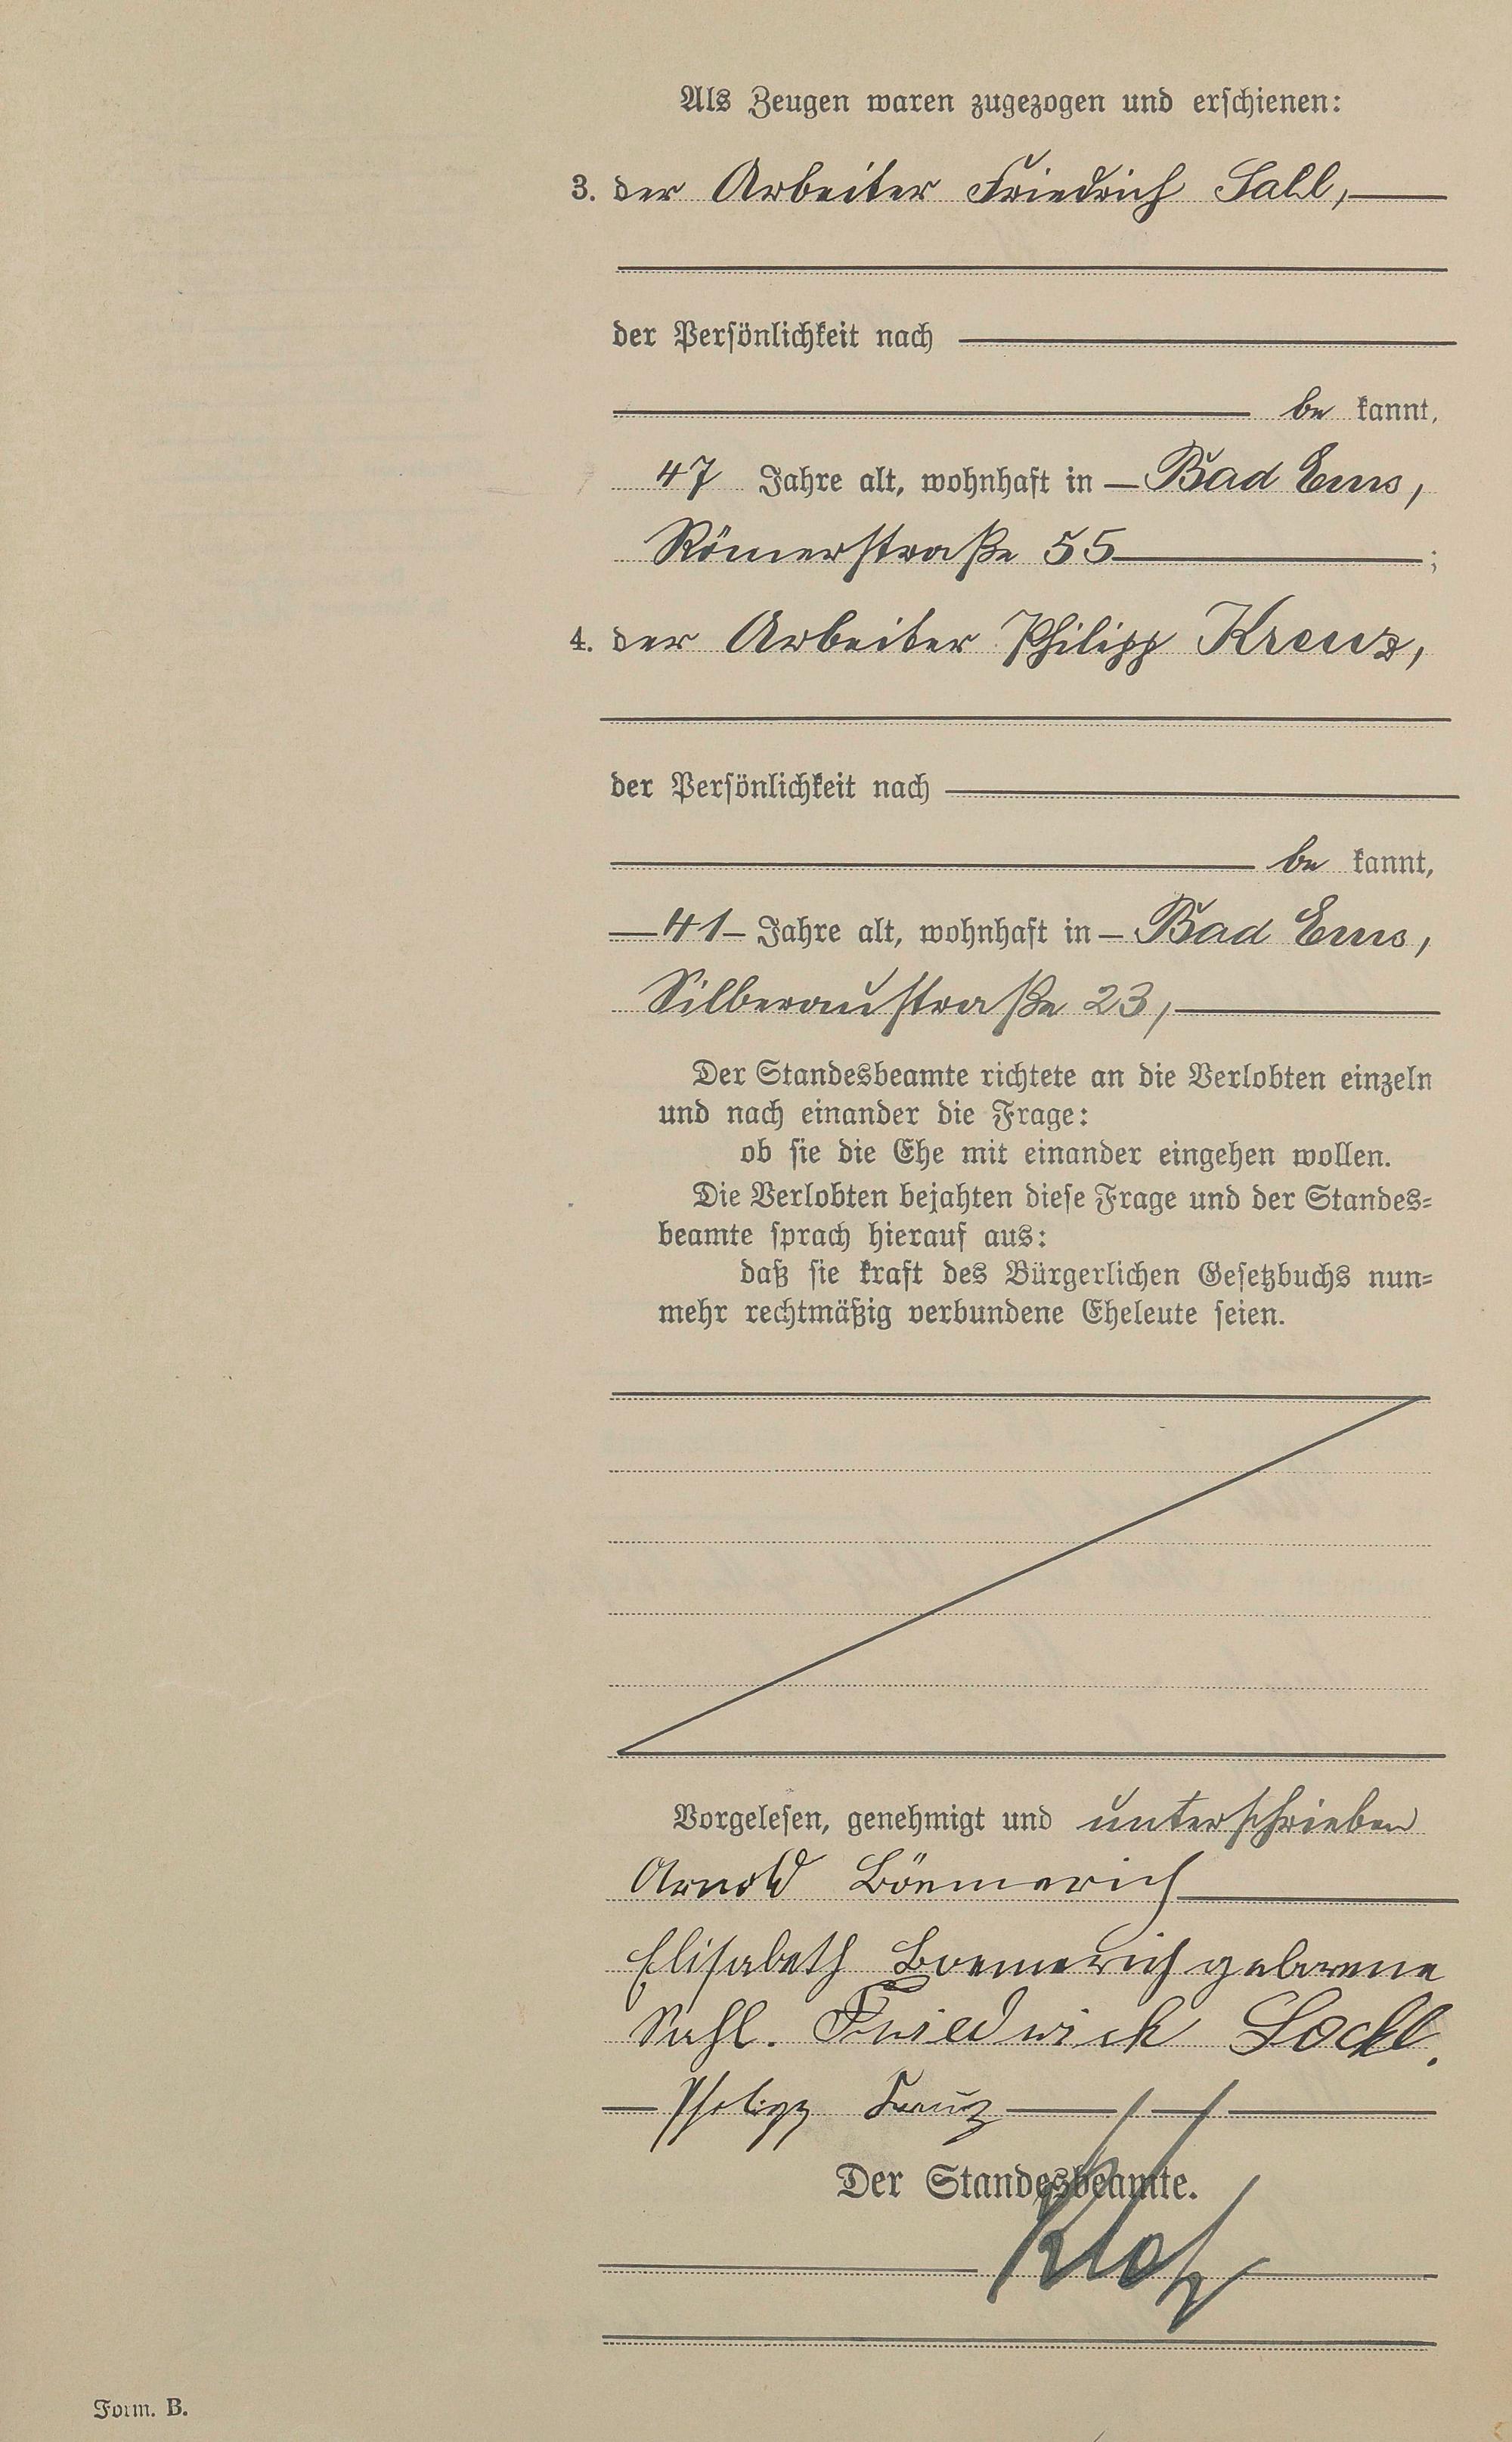 Als Zeugen waren zugezogen und erschienen:
3. der Arbeiter Friedrich Sall,
der Persönlichkeit nach
be kannt,
47 Jahre alt, wohnhaft in Bad Ems,
Römerstraße 55 ;
4. der Arbeiter Philipp Kreuz,
der Persönlichkeit nach
be kannt,
41 Jahre alt, wohnhaft in Bad Ems,
Silberaustraße 23,
Der Standesbeamte richtete an die Verlobten einzeln
und nach einander die Frage:
ob sie die Ehe mit einander eingehen wollen.
Die Verlobten bejahten diese Frage und der Standes=
beamte sprach hierauf aus:
daß sie kraft des Bürgerlichen Gesetzbuchs nun=
mehr rechtmäßig verbundene Eheleute seien.
Vorgelesen, genehmigt und unterschrieben
Arnold Böemerich
Elisabeth Boemerich geborene
Sahl. Friedrich
Philipp Kreuz
Der Standesbeamte.
Klotz
Form. B.